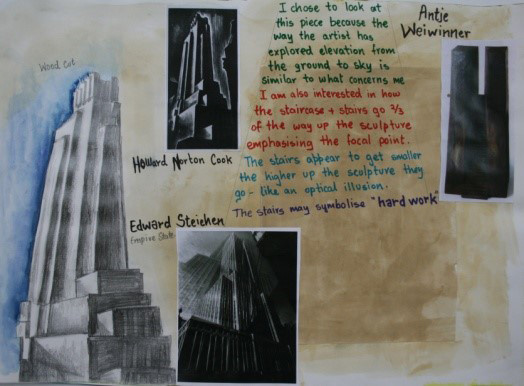 I chose to look at
this piece because the
way the artist has
explored elevation from
the ground to sky is
similar to what concerns me
I am also interested in how
the staircase + stairs go 2/3
of the way up the sculpture
emphasising the focal point.
The stairs appear to get smaller
the higher up the sculpture they
go - like an optical illusion.
The stairs may symbolise "hard work"
Antje
Weiwinner
Wood Cut
Howard Norton Cook
Edward Steichen
Empire State